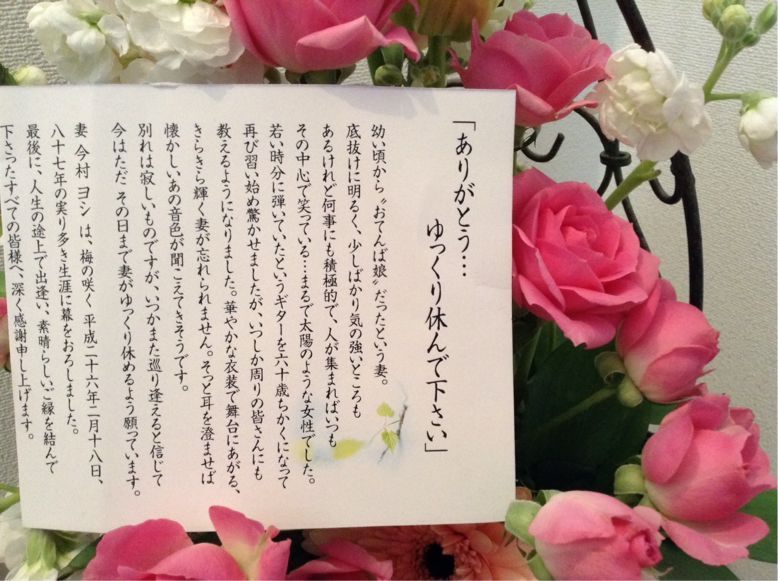 「ありがとう…
ゆっくり休んで下さい」
幼い頃から〝おてんば娘〟だったという妻。
底抜けに明るく、少しばかり気の強いところも
あるけれど何事にも積極的で、人が集まればいつも
その中心で笑っている…まるで太陽のような女性でした。
若い時分に弾いていたというギターを六十歳ちかくになって
再び習い始め驚かせましたが、いつしか周りの皆さんにも
教えるようになりました。華やかな衣装で舞台にあがる、
きらきら輝く妻が忘れられません。そっと耳を澄ませば
懐かしいあの音色が聞こえてきそうです。
別れは寂しいものですが、いつかまた巡り逢えると信じて
今はただ その日まで妻がゆっくり休めるよう願っています。
妻 今村 ヨシ は、梅の咲く 平成二十六年二月十八日、
八十七年の実り多き生涯に幕をおろしました。
最後に、人生の途上で出逢い、素晴らしいご縁を結んで
下さったすべての皆様へ、深く感謝申し上げます。